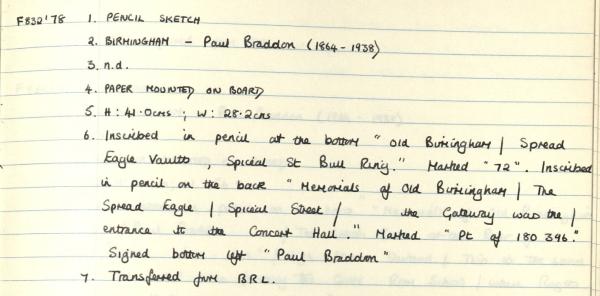 F832'78 1. PENCIL SKETCH
2. BIRMINGHAM - Paul Braddon (1864-1938)
3. n.d.
4. PAPER MOUNTED ON BOARD
5. H: 41.0cms ; W: 28.2cms
6. Inscribed in pencil at the bottom "Old Birmingham | Spread
Eagle Vaults, Spicial St Bull Ring." Marked "72". Inscribed
in pencil on the back "Memorials of Old Birmingham | The
Spread Eagle | Spicial Street / the Gateway was the |
entrance to the Concert Hall." Marked "Pt of 180396."
Signed bottom left "Paul Braddon"
7. Transferred from B.R.L.